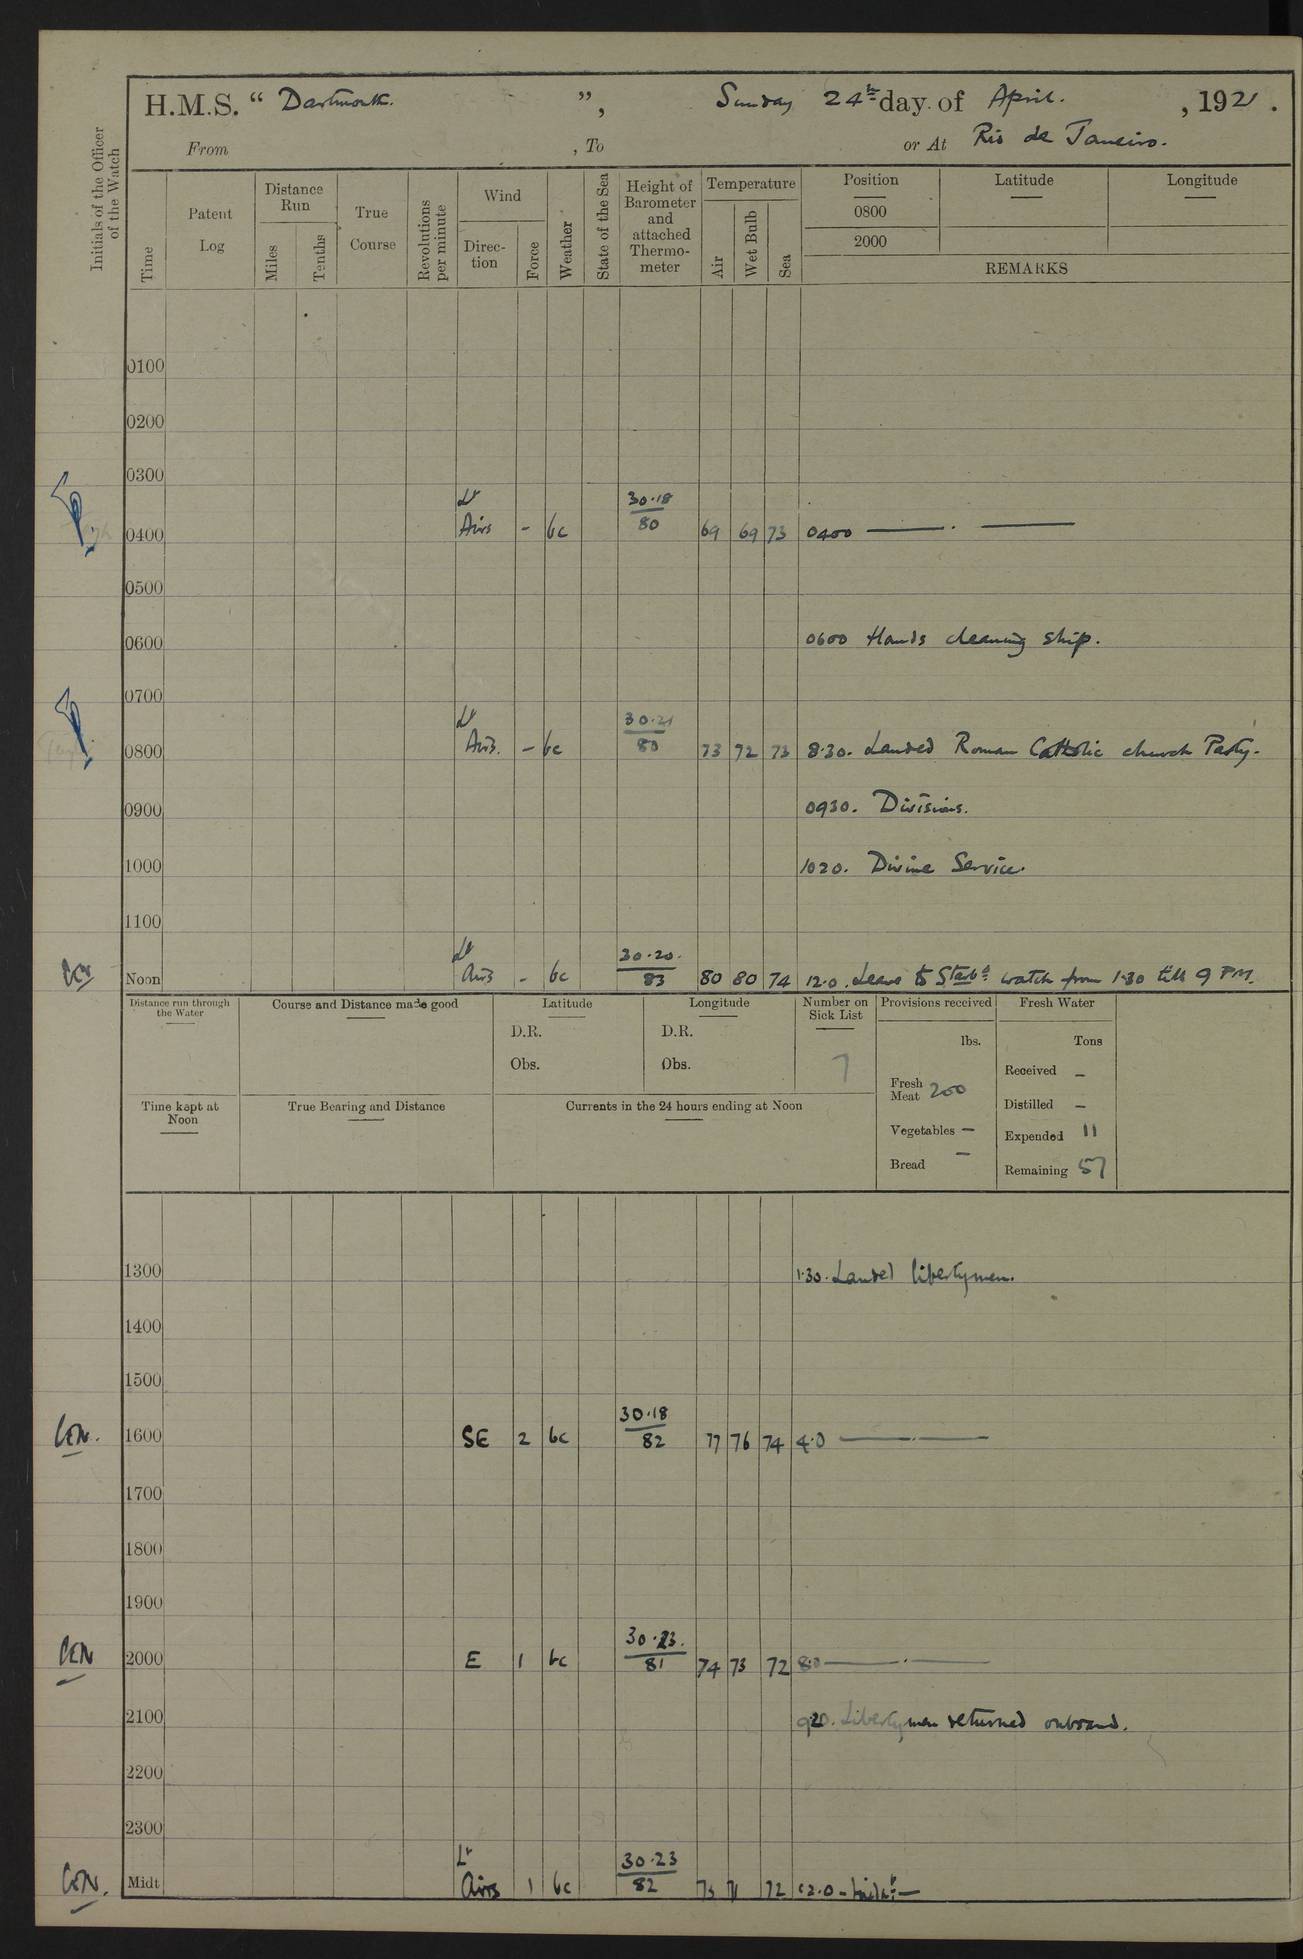 H.M.S. "Dartmouth.", Sunday 24th day of April. , 1921.
From , To or At Rio de Janeiro.
Initials of the Officer of the Watch
Time
Patent Log
Distance Run
Miles
Tenths
True Course
Revolutions per minute
Wind
Direc-tion
Force
Weather
State of the Sea
Height of Barometer and attached Thermo-meter
Temperature
Air
Wet Bulb
Sea
Position Latitude Longitude
0800
2000
REMARKS
0100
0200
0300
0400 Lt Airs - bc 30.18 80 69 69 73 0400 — . —
0500
0600 0600 Hands cleaning ship.
0700
0800 Lt Airs. - bc 30.21 80 73 72 73 8.30. Landed Roman Catholic church Party.
0900 0930. Divisions.
1000 1020. Divine Service.
1100
Noon Lt Airs - bc 30.20. 83 80 80 74 12.0. Leave to Starbd watch from 1.30 till 9 PM.
Distance run through the Water
Course and Distance made good
Latitude
D.R.
Obs.
Longitude
D.R.
Obs.
Number on Sick List
7
Provisions received
lbs.
Fresh Meat 200
Vegetables —
Bread —
Fresh Water
Tons
Received —
Distilled —
Expended 11
Remaining 57
Time kapt at Noon
True Bearing and Distance
Currents in the 24 hours ending at Noon
1300 1.30. Landed libertymen.
1400
1500
CEN. 1600 SE 2 bc 30.18 82 77 76 74 4.0 — . —
1700
1800
1900
CEN 2000 E 1 bc 30.23. 81 74 73 72 8.0 — . —
2100 9.20. Libertymen returned onboard.
2200
2300
CEN. Midt Lt Airs 1 bc 30.23 82 73 71 72 12.0 - Midnt —